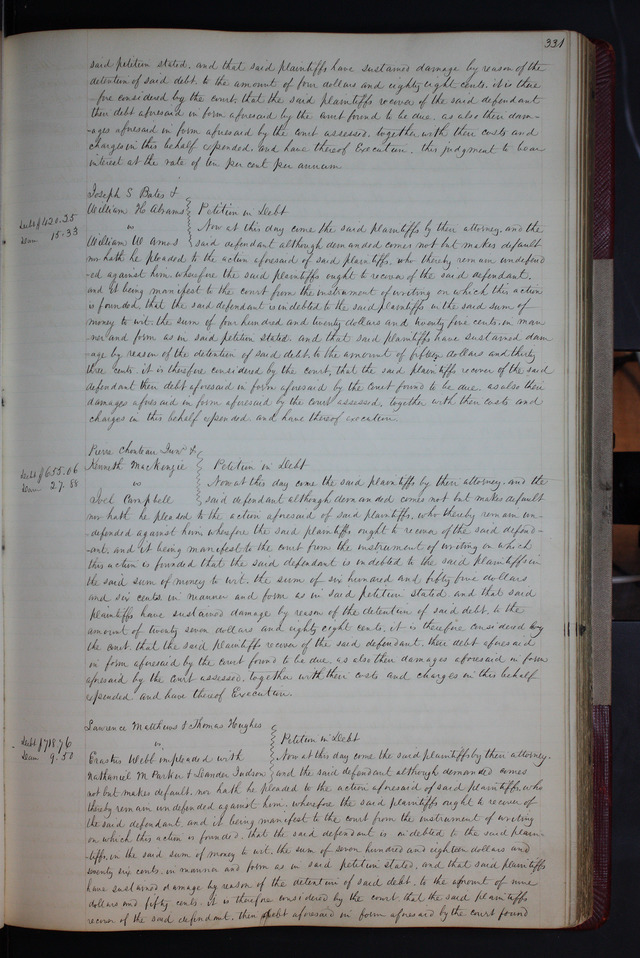 331
said petition stated, and that said plaintiffs have sustained damage by reason of the
detention of said debt, to the amount of four dollars and eighty eight cents. it is there
fore considered by the court, that the said plaintiffs recover of the said defendant
their debt aforesaid in form aforesaid by the court found to be due, as also their dam-
-ages aforesaid in form aforesaid by the court assessed, together with their costs and
charges in this behalf expended, and have thereof Execution. this judgment to bear
interest at the rate of ten per cent per annum
Joseph S Bates &
William H Abrams Petition in Debt
vs Now at this day come the said plaintiffs by their attorney, and the
Debt $420.25
Dam 15.33
William W Ames said defendant although demanded comes not but makes default
nor hath he pleaded to the action aforesaid of said plaintiffs, who thereby remain undefend
-ed against him wherefore the said plaintiffs ought to recover of the said defendant.
and it being manifest to the court from the instrument of writing on which this action
is founded, that the said defendant is indebted to the said plaintiffs in the said sum of
money to wit, the sum of four hundred and twenty dollars and twenty five cents, in man
ner and form as in said petition stated, and that said plaintiffs have sustained dam
-age by reason of the detention of said debt, to the amount of fifteen dollars and thirty
three cents. it is therefore considered by the court, that the said plaintiffs recover of the said
defendant their debt aforesaid in form aforesaid by the court found to be due, as also their
damages aforesaid in form aforesaid by the court assessed, together with their costs and
charges in this behalf expended and have thereof execution.
Pierre Chouteau Junr &
Kenneth MacKenzie Petition in Debt
Debt $655.06
Dam 27.88
vs Now at this day come the said plaintiffs by their attorney, and the
Joel Campbell said defendant although demanded comes not but makes default
nor hath he pleaded to the action aforesaid of said plaintiffs, who thereby remain un-
-defended against him, wherefore the said plaintiffs ought to recover of the said defend-
-ant, and it being manifest to the court from the instrument of writing on which
this action is founded that the said defendant is indebted to the said plaintiffs in
the said sum of money to wit, the sum of six hundred and fifty five dollars
and six cents in manner and form as in said petition stated, and that said
plaintiffs have sustained damage by reason of the detention of said debt, to the
amount of twenty seven dollars and eighty eight cents. it is therefore considered by
the court, that the said plaintiffs recover of the said defendant, their debt aforesaid
in form aforesaid by the court found to be due, as also their damages aforesaid in form
aforesaid by the court assessed, together with their costs and charges in this behalf
expended and have thereof Execution.
Lawrence Matthews & Thomas Hughes
vs Petition in Debt
Debt $718.76
Dam 9.50
Erastus Webb impleaded with Now at this day come the said plaintiffs by their attorney,
Nathaniel M Parker & Leander Judson and the said defendant although demanded comes
not but makes default, nor hath he pleaded to the action aforesaid of said plaintiffs, who
thereby remain undefended against him, wherefore the said plaintiffs ought to recover of
the said defendant, and it being manifest to the court from the instrument of writing
on which this action is founded, that the said defendant is indebted to the said plain-
-tiffs, in the said sum of money to wit, the sum of seven hundred and eighteen dollars and
seventy six cents, in manner and form as in said petition stated, and that said plaintiffs
have sustained damage by reason of the detention of said debt, to the amount of nine
dollars and fifty cents. it is therefore considered by the court, that the said plaintiffs
recover of the said defendant, their debt aforesaid in form aforesaid by the court found